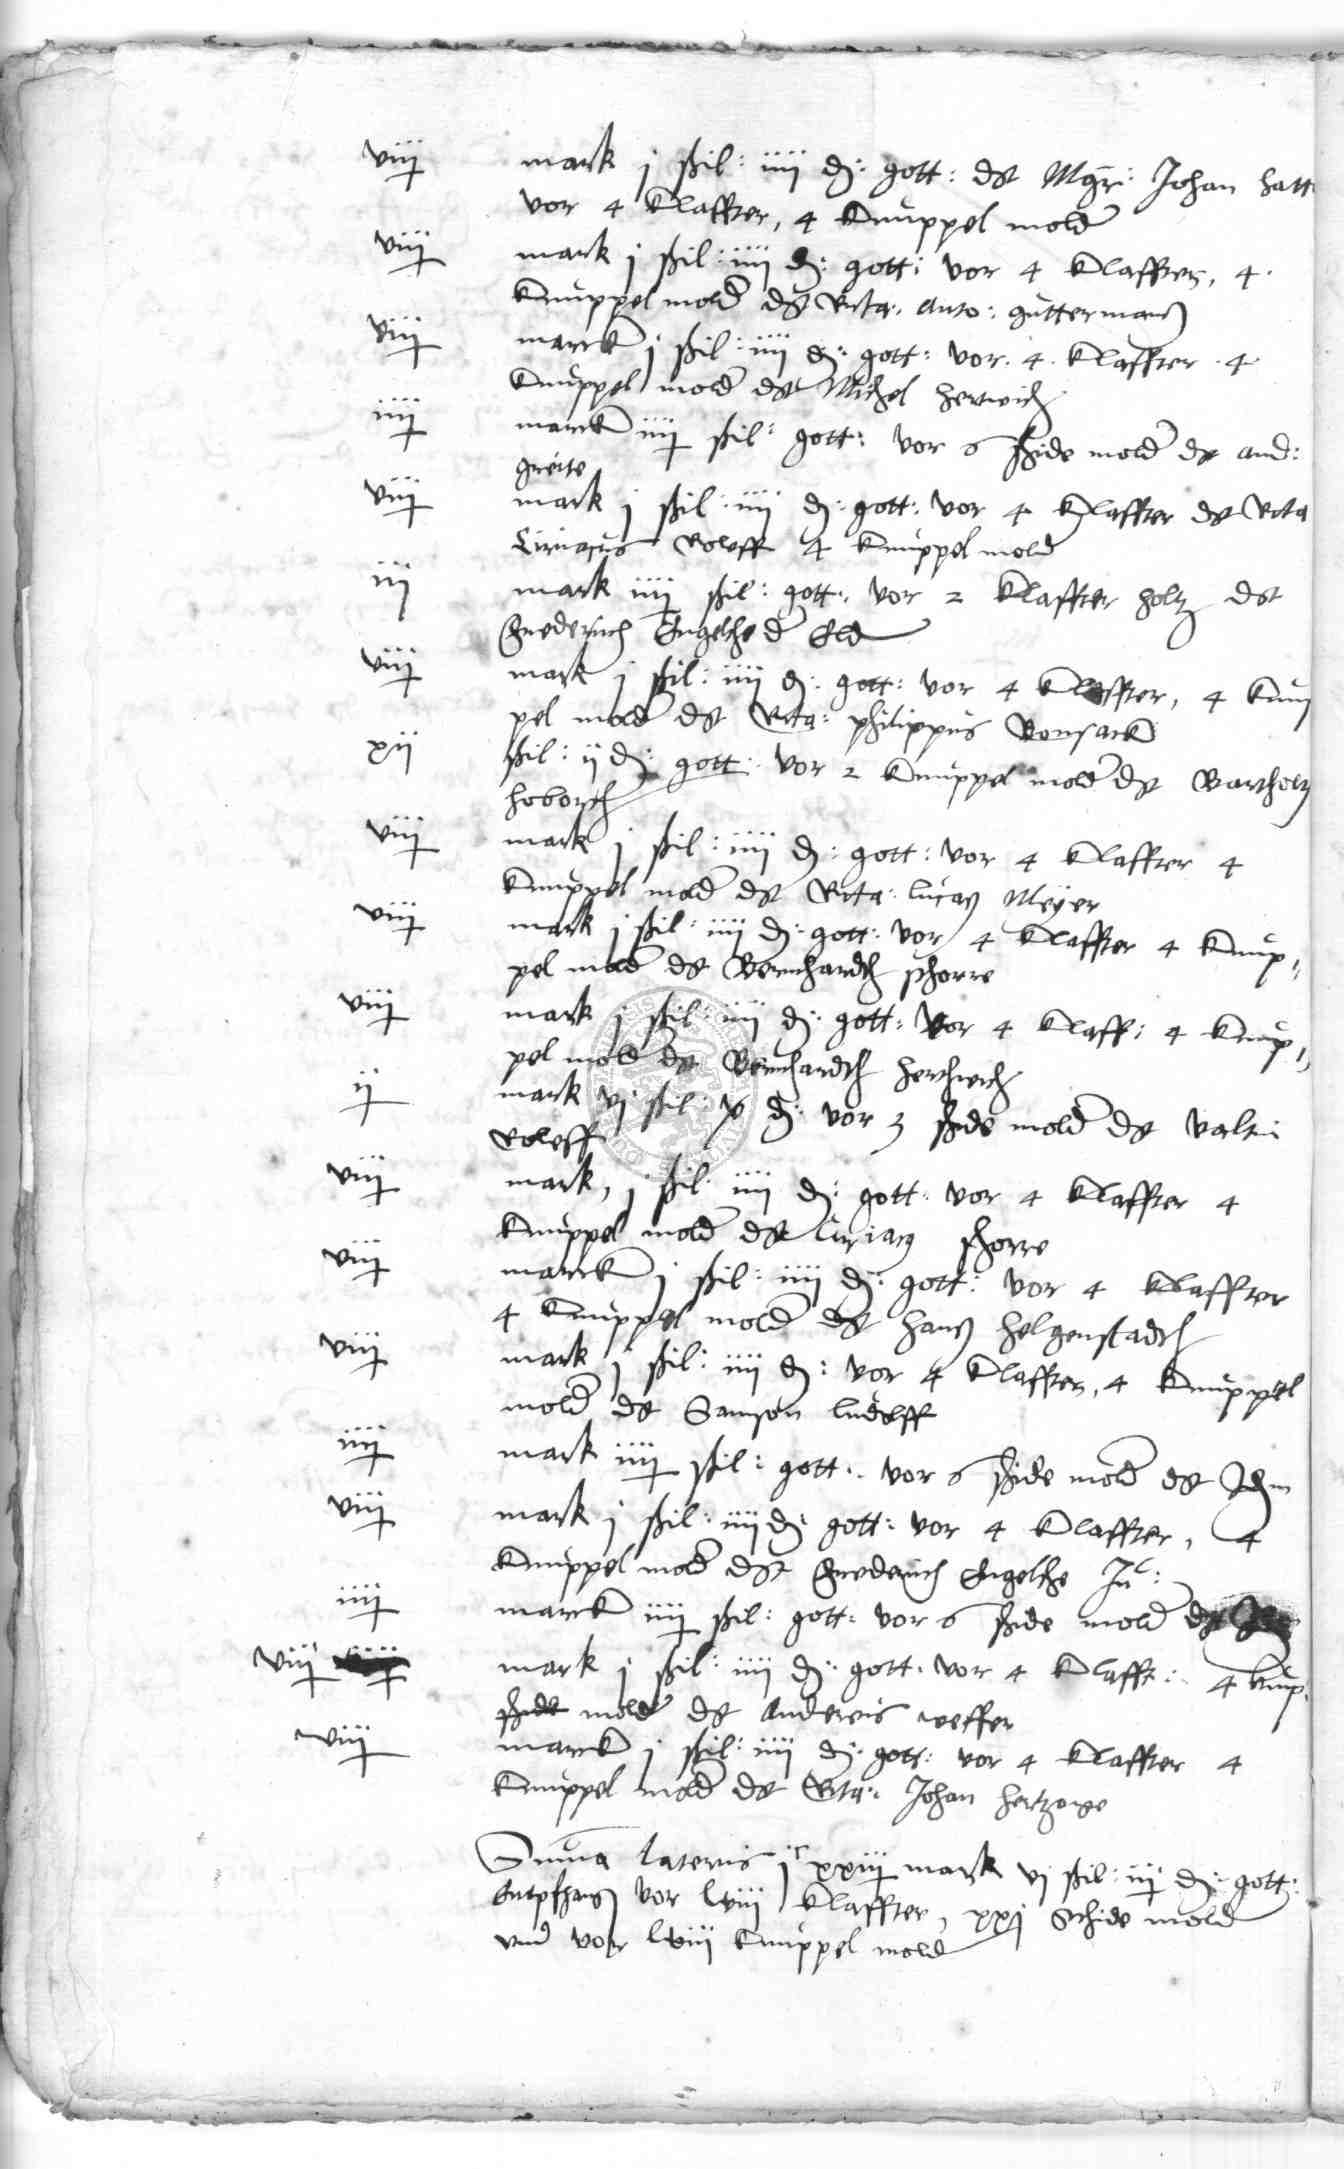 viiij mark j ßil: iiij d: gott: dt Mgr: Johan hatt
vor 4 Klaffter, 4 Knuppel mold
viiij mark j ßil: iiij d: gott: vor 4 Klaffter, 4
Knuppel mold dt Anto: guttermans
viiij marck j ßil: iiij d: gott: vor 4 Klaffter 4
Knuppel mold dt Michel hertwich
iiij marck iiij ßil: gott: vor 6 shide mold dt And:
greite
viiij mark j ßil: iiij d: gott: vor 4 Klaffter dt
Ciriacus Roleff 4 Knuppel mold
iij mark iiij ßil: gott: vor 2 Klaffter holtz dt
Frederich Engelhe d Eld
viiij mark j ßil: iiij d: gott: vor 4 Klaffter, 4 Knup
pel mold dt philippus Bonsack
xij ßil: ij d: gott: vor 2 Knuppel mold dt
hoborch
viiij mark j ßil: iiij d: gott: vor 4 Klaffter 4
Knuppel mold dt lucas Meyer
viiij mark j ßil: iiij d: gott: vor 4 Klaffter 4 Knup
pel mold dt Bernhardth shorre
viiij mark j ßil: iiij d: gott: vor 4 Klaff: 4 Knup
pel mold dt Bernhardth herthwich
ij mark vj ßil: x d: vor 3 shide mold dt valtin
Roleff
viiij mark, j ßil: iiij d: gott: vor 4 Klaffter 4
Knuppel mold dt Ciriacus shorre
viiij marck j ßil: iiij d: gott: vor 4 Klaffter
4 Knuppel mold dt hans helgenstadth
viiij mark j ßil: iiij d: vor 4 Klaffter, 4 Knuppel
mold dt Samson ludolff
iiij mark iiij ßil: gott: vor 6 shide mold dt Idem
viiij mark j ßil: iiij d: gott: vor 4 Klaffter, 4
Knuppel mold dt Frederich Engelhe Ju:
iiij marck iiij ßil: gott: vor 6 shide mold dt
viiij mark j ßil: iiij d: gott: vor 4 Klafft: 4 Knup
shide mold dt Anderews weffer
viiij marck j ßil: iiij d: gott: vor 4 Klaffter 4
Knuppel mold dt Johan hertzoge
Summa lateris jc xxiiij mark vj ßil: iiij d: gott:
Entpfhangen vor lviij Klaffter, xxj Schide mold
und vor lviij Knuppel mold